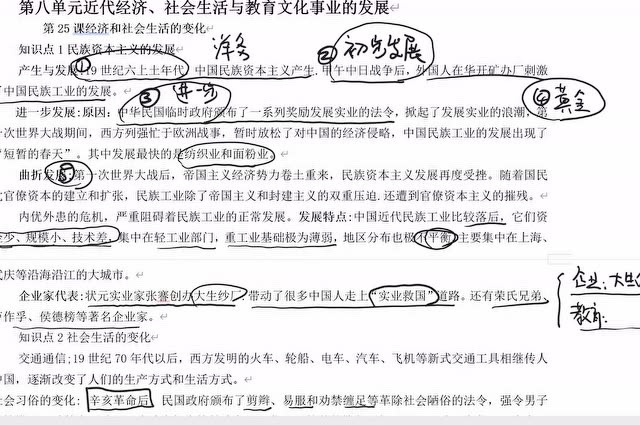 第八单元近代经济、社会生活与教育文化事业的发展
第 25 课经济和社会生活的变化
知识点 1 民族资本主义的发展
洋务
② 初步发展
产生与发展:19 世纪六七十年代,中国民族资本主义产生.甲午中日战争后,外国人在华开矿办厂刺激
①
了中国民族工业的发展。
③ 进一步
④ 黄金
进一步发展:原因:中华民国临时政府颁布了一系列奖励发展实业的法令,掀起了发展实业的浪潮,第
一次世界大战期间,西方列强忙于欧洲战事,暂时放松了对中国的经济侵略,中国民族工业的发展出现了
“短暂的春天”。其中发展最快的是纺织业和面粉业。
曲折发展:第一次世界大战后,帝国主义经济势力卷土重来,民族资本主义发展再度受挫。随着国民
官僚资本的建立和扩张,民族工业除了帝国主义和封建主义的双重压迫.还遭到官僚资本的摧残。
内优外患的危机,严重阻碍着民族工业的正常发展。发展特点:中国近代民族工业比较落后,它们资
少、规模小、技术差,集中在轻工业部门,重工业基础极为薄弱,地区分布也极不平衡,主要集中在上海、
庆等沿海沿江的大城市。
企业家代表:状元实业家张謇创办大生纱厂,带动了很多中国人走上“实业救国”道路。还有荣氏兄弟、
作孚、侯德榜等著名企业家。
企业:大生
教育:
知识点 2 社会生活的变化
交通通信;19 世纪 70 年代以后,西方发明的火车、轮船、电车、汽车、飞机等新式交通工具相继传人
中国,逐渐改变了人们的生产方式和生活方式。
社会习俗的变化: 辛亥革命后, 民国政府颁布了剪辫、易服和劝禁缠足等革除社会陋俗的法令,强令男子